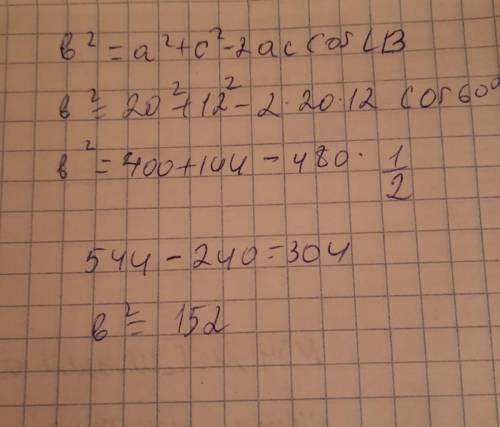 в² = a² + c² - 2ac cos∠B
в² = 20² + 12² - 2·20·12 cos60°
в² = 400 + 144 - 480 · 1/2
544 - 240 = 304
в² = 152